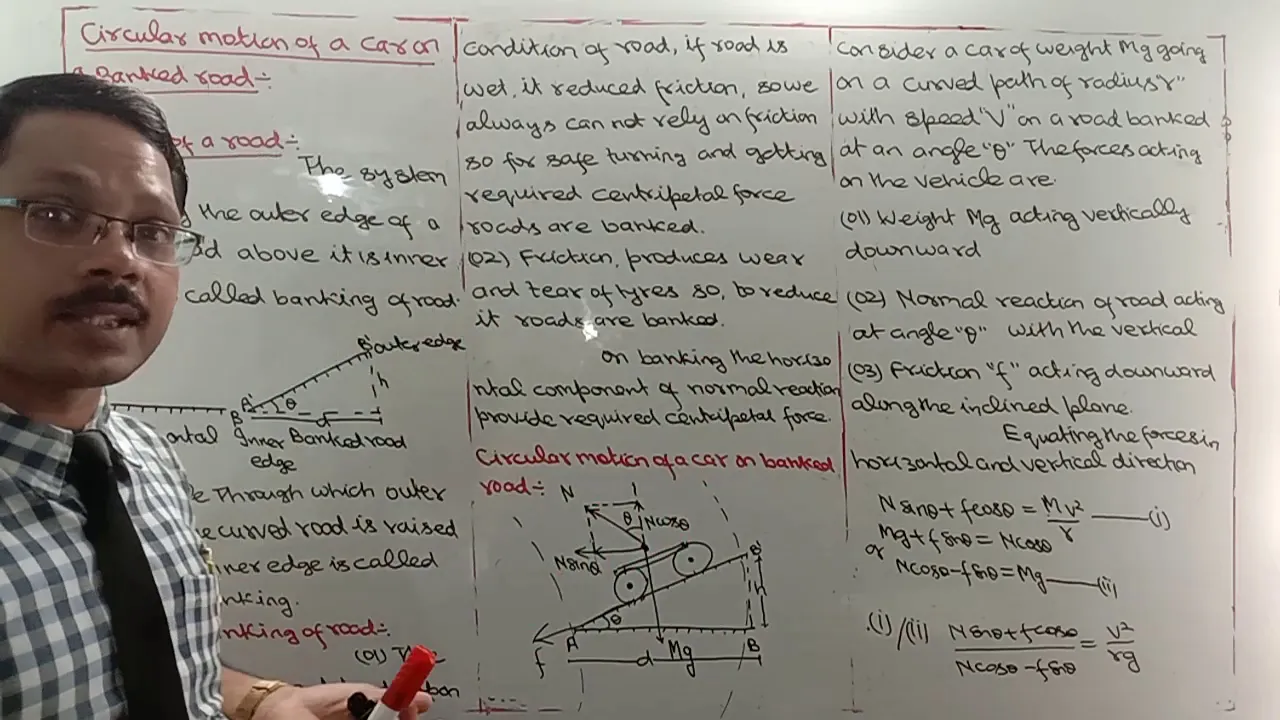 Circular motion of a car on
a Banked road:-
of a road:-
The system
the outer edge of a
above it is inner
called banking of road.
B' outer edge
h
A'
θ
B
d
Inner Banked road
edge
Through which outer
curved road is raised
inner edge is called
banking of road:-
(01) The
condition of road, if road is
wet, it reduced friction, so we
always can not rely on friction
so for safe turning and getting
required centripetal force
roads are banked.
(02) Friction, produces wear
and tear of tyres so, to reduce
it roads are banked.
on banking the horizo
ntal component of normal reaction
provide required centripetal force.
Circular motion of a car on banked
road:-
N
θ
Ncosθ
Nsinθ
B'
h
θ
f
A
Mg
B
d
Consider a car of weight Mg going
on a curved path of radius r"
with speed "V" on a road banked
at an angle "θ" The forces acting
on the vehicle are.
(01) Weight Mg acting vertically
downward
(02) Normal reaction of road acting
at angle "θ" with the vertical
(03) Friction "f" acting downward
along the inclined plane.
Equating the forces in
horizontal and vertical direction
N sinθ + f cosθ = Mv²/r —— (i)
Mg + f sinθ = N cosθ
or
N cosθ - f sinθ = Mg —— (ii)
(i)/(ii) (N sinθ + f cosθ)/(N cosθ - f sinθ) = v²/rg